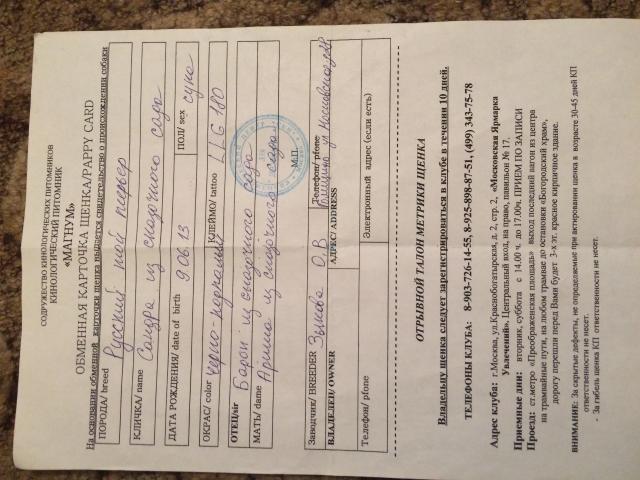 СОДРУЖЕСТВО КИНОЛОГИЧЕСКИХ ПИТОМНИКОВ
КИНОЛОГИЧЕСКИЙ ПИТОМНИК
«МАГНУМ»
ОБМЕННАЯ КАРТОЧКА ЩЕНКА/PAPPY CARD
На основании обменной карточки щенка выдается свидетельство о происхождении собаки
ПОРОДА/ breed Русский той терьер
КЛИЧКА/ name Сандра из сказочного сада
ДАТА РОЖДЕНИЯ/ date of birth 9.06.13 ПОЛ/ sex сука
ОКРАС/ color черно-подпалый КЛЕЙМО/ tattoo LLG 180
ОТЕЦ/sir Барон из сказочного сада
МАТЬ/ dame Арина из сказочного сада
М.П.
Заводчик/ BREEDER Зимова О.В Телефон/ phone
ВЛАДЕЛЕЦ/ OWNER АДРЕС/ ADDRESS
Телефон/ phone Электронный адрес (если есть)
ОТРЫВНОЙ ТАЛОН МЕТРИКИ ЩЕНКА
Владельцу щенка следует зарегистрироваться в клубе в течении 10 дней.
ТЕЛЕФОНЫ КЛУБА: 8-903-726-14-55, 8-925-898-87-51, (499) 343-75-78
Адрес клуба: г.Москва, ул.Краснобогатырская, д. 2, стр. 2, «Московская Ярмарка
Увлечений». Центральный вход, на право, павильон № 17.
Приемные дни: вторник, суббота с 14.00 ч. до 17.00ч. ПРИЕМ ПО ЗАПИСИ
Проезд: ст.метро «Преображенская площадь» выход последний вагон из центра
на трамвайные пути, на любом трамвае до остановки «Богородский храм»,
дорогу перешли перед Вами будет 3-х эт. красное кирпичное здание.
ВНИМАНИЕ: За скрытые дефекты, не определяемые при актировании щенка в возрасте 30-45 дней КП
ответственности не несет.
- За гибель щенка КП ответственности не несет.